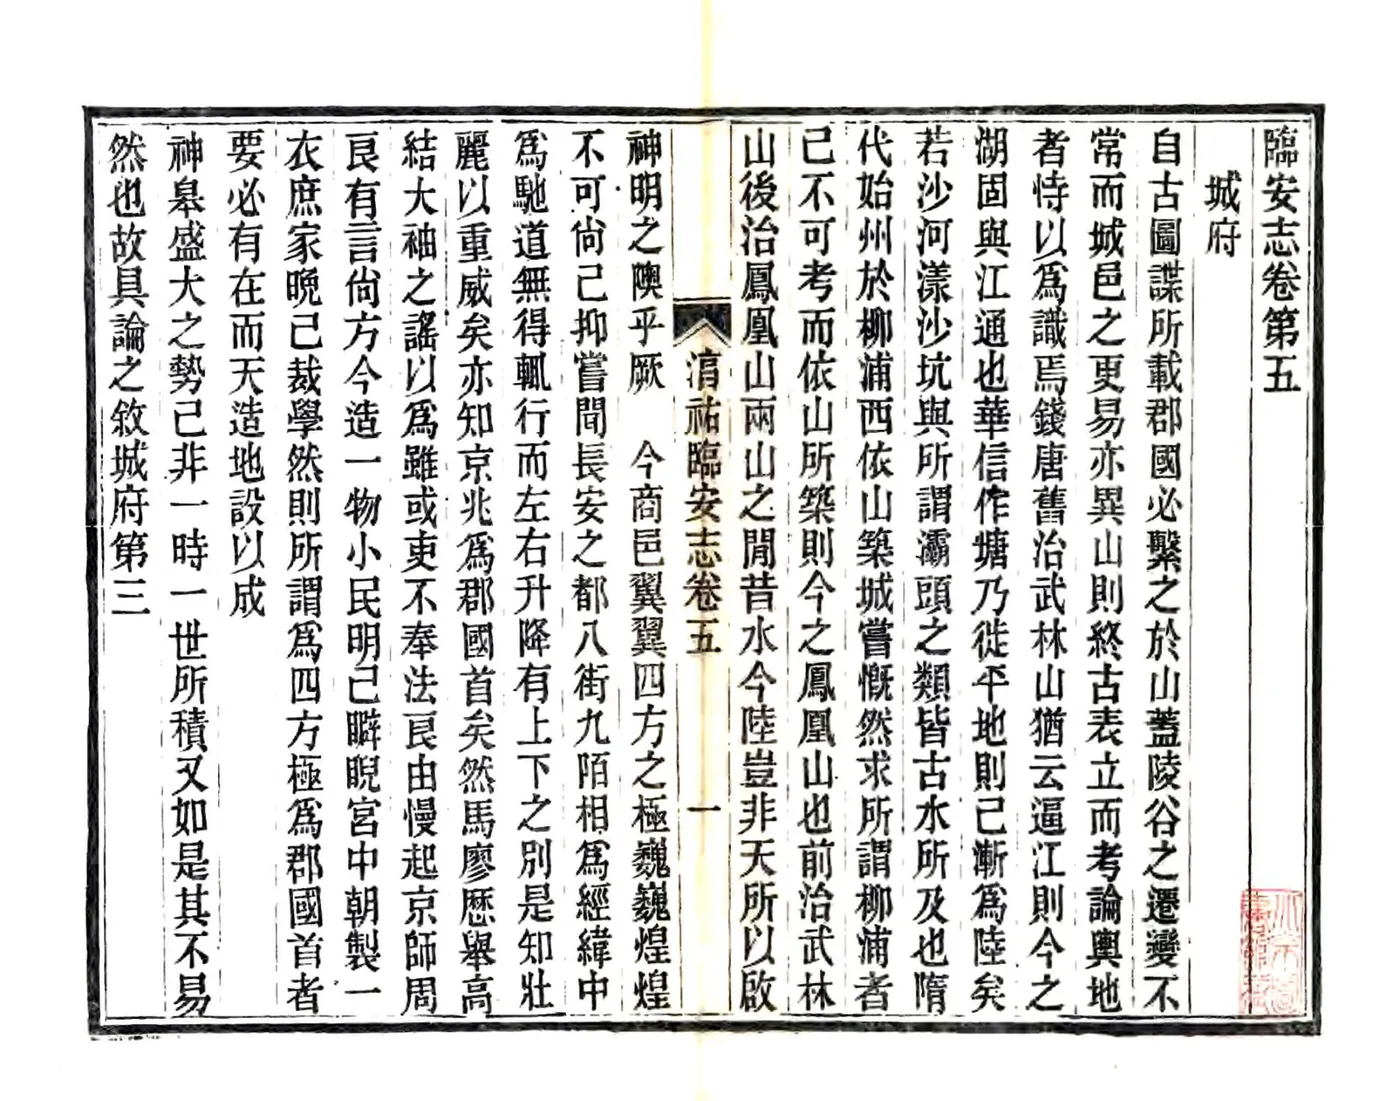 臨安志卷第五
城府
自古圖諜所載郡國必繫之於山蓋陵谷之遷變不
常而城邑之更易亦異山則終古表立而考論輿地
者恃以爲識焉錢唐舊治武林山猶云逼江則今之
湖固與江通也華信作塘乃徙平地則已漸爲陸矣
若沙河漾沙坑與所謂灞頭之類皆古水所及也隋
代始州於柳浦西依山築城嘗慨然求所謂柳浦者
己不可考而依山所築則今之鳳凰山也前治武林
山後治鳳凰山兩山之閒昔水今陸豈非天所以啟
淯祐臨安志卷五
一
神明之隩乎厥　今商邑翼翼四方之極巍巍煌煌
不可尙己抑嘗聞長安之都八街九陌相爲經緯中
爲馳道無得輒行而左右升降有上下之別是知壯
麗以重威矣亦知京兆爲郡國首矣然馬廖歷舉高
結大袖之謠以爲雖或吏不奉法良由慢起京師周
良有言尙方今造一物小民明己睥睨宮中朝製一
衣庶家晩己裁學然則所謂爲四方極爲郡國首者
要必有在而天造地設以成
神皋盛大之勢己非一時一世所積又如是其不易
然也故具論之敘城府第三